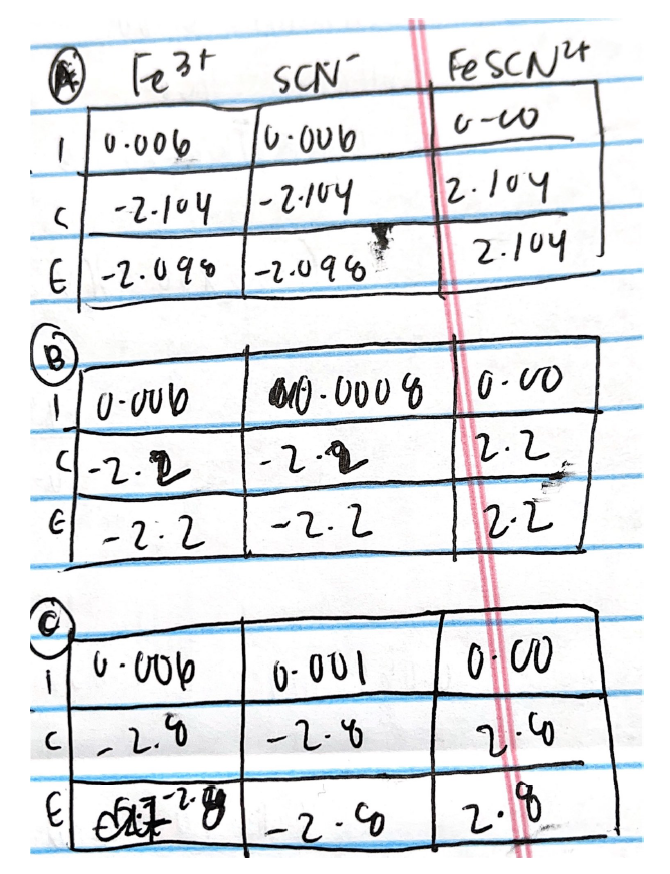 A Fe³⁺ SCN⁻ FeSCN²⁺
I 0.006 0.006 0.00
C -2.104 -2.104 2.104
E -2.098 -2.098 2.104
B
I 0.006 0.0008 0.00
C -2.2 -2.2 2.2
E -2.2 -2.2 2.2
C
I 0.006 0.001 0.00
C -2.8 -2.8 2.8
E -2.8 -2.8 2.8